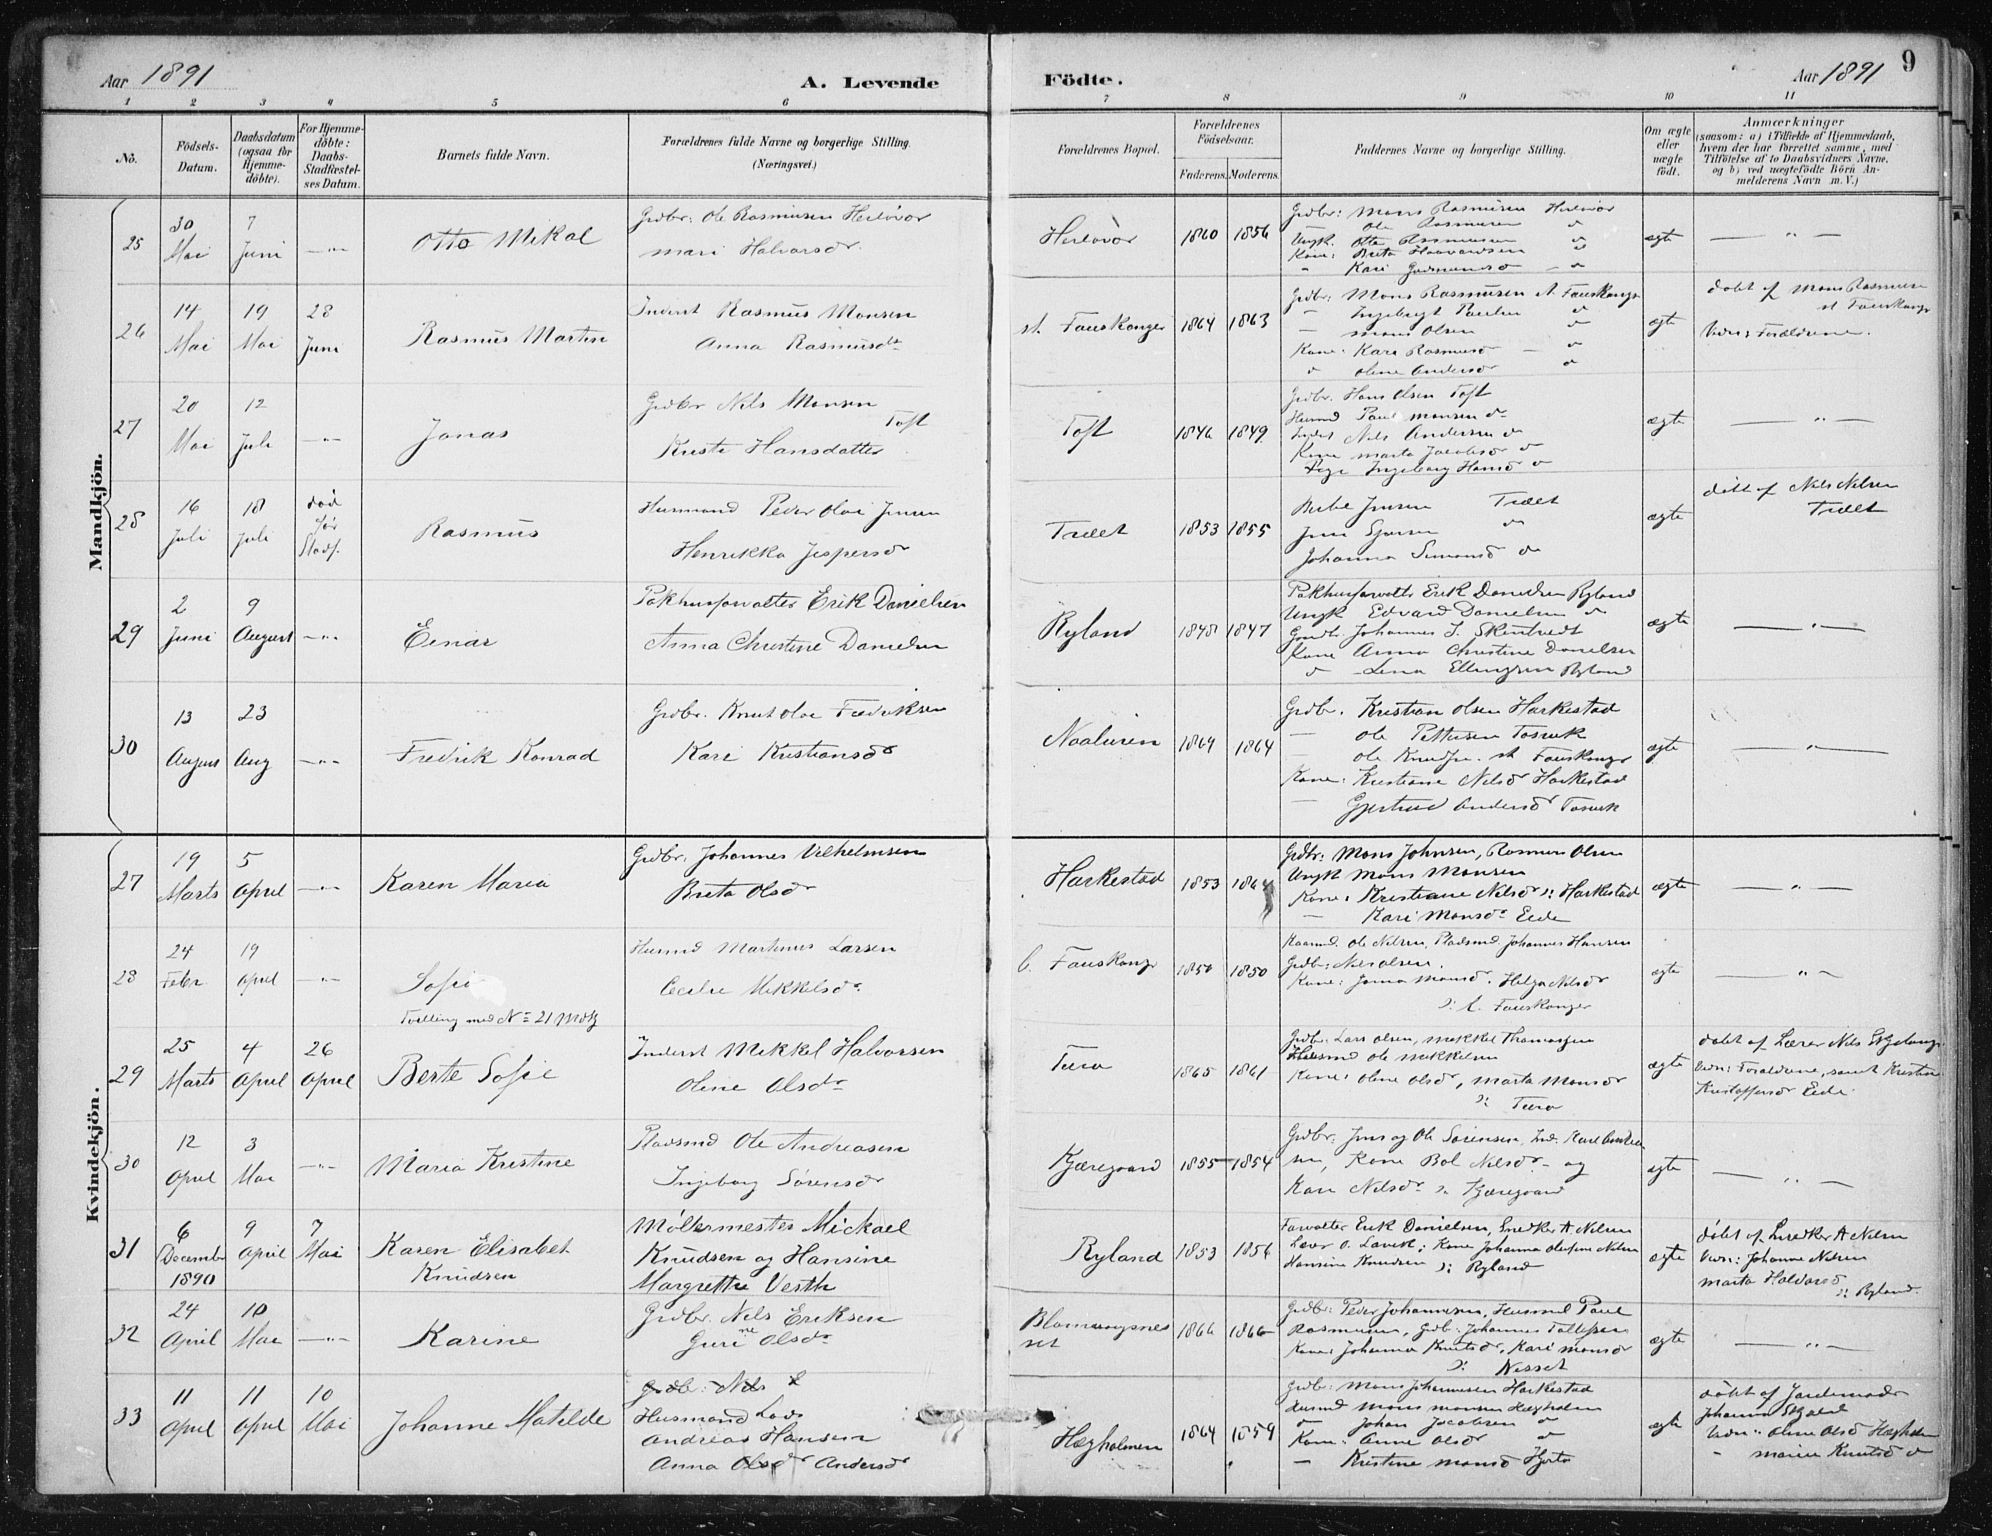 Aar 1891
A. Levende
Födte.
Aar 1891
9
1 2 3 4 5 6 7 8 9 10 11
No.
Födsels-Datum.
Daabsdatum (ogsaa for Hjemme-döbte).
For Hjemme-döbte: Daabs-Stadfæstel-ses Datum.
Barnets fulde Navn.
Forældrenes fulde Navne og borgerlige Stilling. (Næringsvei.)
Forældrenes Bopæl.
Forældrenes Födselsaar.
Faderens. Moderens.
Faddernes Navne og borgerlige Stilling.
Om ægte eller uægte födt.
Anmærkninger
(saasom: a) i Tilfælde af Hjemmedaab, hvem der har forrettet samme, med Tilföielse af to Daabsvidners Navne, og b) ved uægtefödte Börn Anmelderens Navn m. V.)
Mandkjön.
25 30 Mai 7 Juni —"— Otto Mikal
Grdbr: Ole Rasmusen Herløvør
Mari Halvorsdr
Herløvør 1860 1856
Grdbr: Mons Rasmusen Herløvør
Ole Rasmusen
Ungk. Otto Rasmusen
Kone: Brita Haavardsen
Kari Gudmundsd
ægte —"—
26 14 Mai 19 Mai 28 Juni Rasmus Martin
Inderst Rasmus Monsen
Anna Rasmusdr
st. Fauskanger 1864 1863
Grdbr: Mons Rasmusen st. Fauskanger
Ingebrigt Paulsen
Mons Olsen
Kone: Kari Rasmusd
Oline Andersdr
ægte
døbt af Mons Rasmusen
st Fauskanger
Vidn: Forældrene.
27 20 Mai 12 Juli —"— Jonas
Grdbr Nils Monsen
Toft
Kristi Hansdatter
Toft 1846 1849
Grdbr. Hans Olsen Toft
Husmd Paul Monsen
Inderst Nils Andersen
Kone Marta Jacobsdr
Pige Ingeborg Hansd
ægte —"—
28 16 Juli 18 Juli død før Stadf. Rasmus
Husmand Peder Olai Jensen
Henrikka Jespersdr
Trædet 1853 1855
Jensen Trædet
Johanna Simonsd
ægte
døbt af Nils Nilsen
Trædet
29 2 Juni 9 August —"— Einar
Pakhusforvalter Erik Danielsen
Anna Christine Danielsen
Ryland 1848 1847
Pakhusforvalt Erik Danielsen Ryland
Ungk Edvard Danielsen
Gaardb. Johannes J. Skintvedt
Kone Anna Christine Danielsen
Lena Ellingsen Ryland
ægte —"—
30 13 August 23 Aug —"— Fredrik Konrad
Grdbr. Knut Olai Fredriksen
Kari Kristiansdr
Naaluren 1864 1864
Grdbr. Kristian Olsen Harkestad
Ole Pettersen Tosvik
Ole Knudsen st Fauskanger
Kone: Kristiane Nilsdr Harkestad
Gjertrud Andersdr Tosvik
ægte —"—
Kvindekjön.
27 19 Marts 5 April —"— Karen Maria
Grdbr. Johannes Vilhelmsen
Brita Olsdr
Harkestad 1853 1864
Grdbr: Mons Johnsen, Rasmus Olsen
Ungk Mons Monsen
Kone: Kristiane Nilsdr ɔ: Harkestad
Kari Monsdr Eide
ægte —"—
28 24 Feber 19 April —"— Sofie
Tvilling med No 21 Mdkj
Husmd Martinus Larsen
Cecilie Mikkelsdr
l. Fauskanger 1850 1850
Kaarmd. Ole Nilsen, Pladsmd. Johannes Hansen
Grdb: Nils Olsen.
Kone: Monsdr. Helga Nilsdr
ɔ: l. Fauskanger
ægte —"—
29 25 Marts 4 April 26 April Berte Sofie
Inderst Mikkel Halvorsen
Oline Olsdr
Turø 1865 1861
Grdb: Lars Olsen, Mikkel Thomassen
Husmd Ole Mikkelsen
Kone: Oline Olsdr, Marta Monsdr
ɔ: Turø
ægte
døbt af Lærer Nils
Vidn: Forældrene, samt Kristine
Kristoffersdr Eide.
30 12 April 3 Mai —"— Maria Kristine
Pladsmd Ole Andreasen
Ingeborg Sørensdr
Kjæregaard 1855 1854
Grdbr: Jens og Ole Sørensen, Ind. Karl
sen, Kone Bol Nilsdr og
Kari Nilsdr ɔ: Kjæregaard
ægte —"—
31 6 December 1890 9 April 7 Mai Karen Elisabet Knudsen
Møllermester Mickael
Knudsen og Hansine
Margrethe Vesth
Ryland 1853 1856
Forvalter Erik Danielsen, Snedker A Nilsen
Lærer O. Lavik; Kone Johanna Nilsen
Hansine Knudsen ɔ: Ryland
ægte
døbt af Snedker A Nilsen
Vidn: Johanne Nilsen
Marta Haldorsd
ɔ: Ryland.
32 24 April 10 Mai —"— Karine
Grdbr. Nils Eriksen
Gurine Olsdr
Blomvaagnesset 1866 1866
Grdbr: Peder Johannesen, Husmd Paul
Rasmusen, Grdb. Johannes Tollefsen
Kone: Johanna Knutsdr, Kari Monsdr
ɔ: Nesset
ægte —"—
33 11 April 11 April 10 Mai Johanne Matilde
Grdb: Nils
Husmand Lods
Andreas Hansen
Anna Olsdr Andersdr
Hægholmen 1864 1859
Grdb: Mons Johannesen Harkestad
Husmd Mons Monsen Hægholmen
Johan Jacobsen
Kone: Anne Olsdr
Kristine Monsd Hjerta
ægte
døbt af Jordemoder
Johanna
Vidn: Oline Olsd Hægholmen
Marie Knutsd